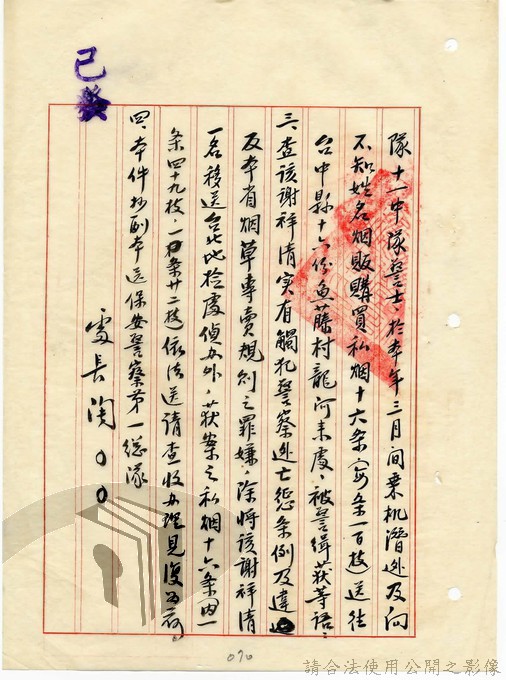 已發
隊十一中隊警士於本年三月間乘机潛逃及向
不知姓名烟販購買私烟十六条(每条一百枝)送往
台中縣十六份魚藤村龍河未處、被警緝获等語:
三、查該謝祥清实有觸犯警察逃亡懲条例及違
反本省烟草專賣規則之罪嫌、除將該謝祥清
一名移送台北地檢處偵办外、获案之私烟十六条内一
条四十九枝、一条廿二枝依法送請查收办理見復为荷
四、本件抄副本送保安警察第一總隊
處長陶
070
請合法使用公開之影像